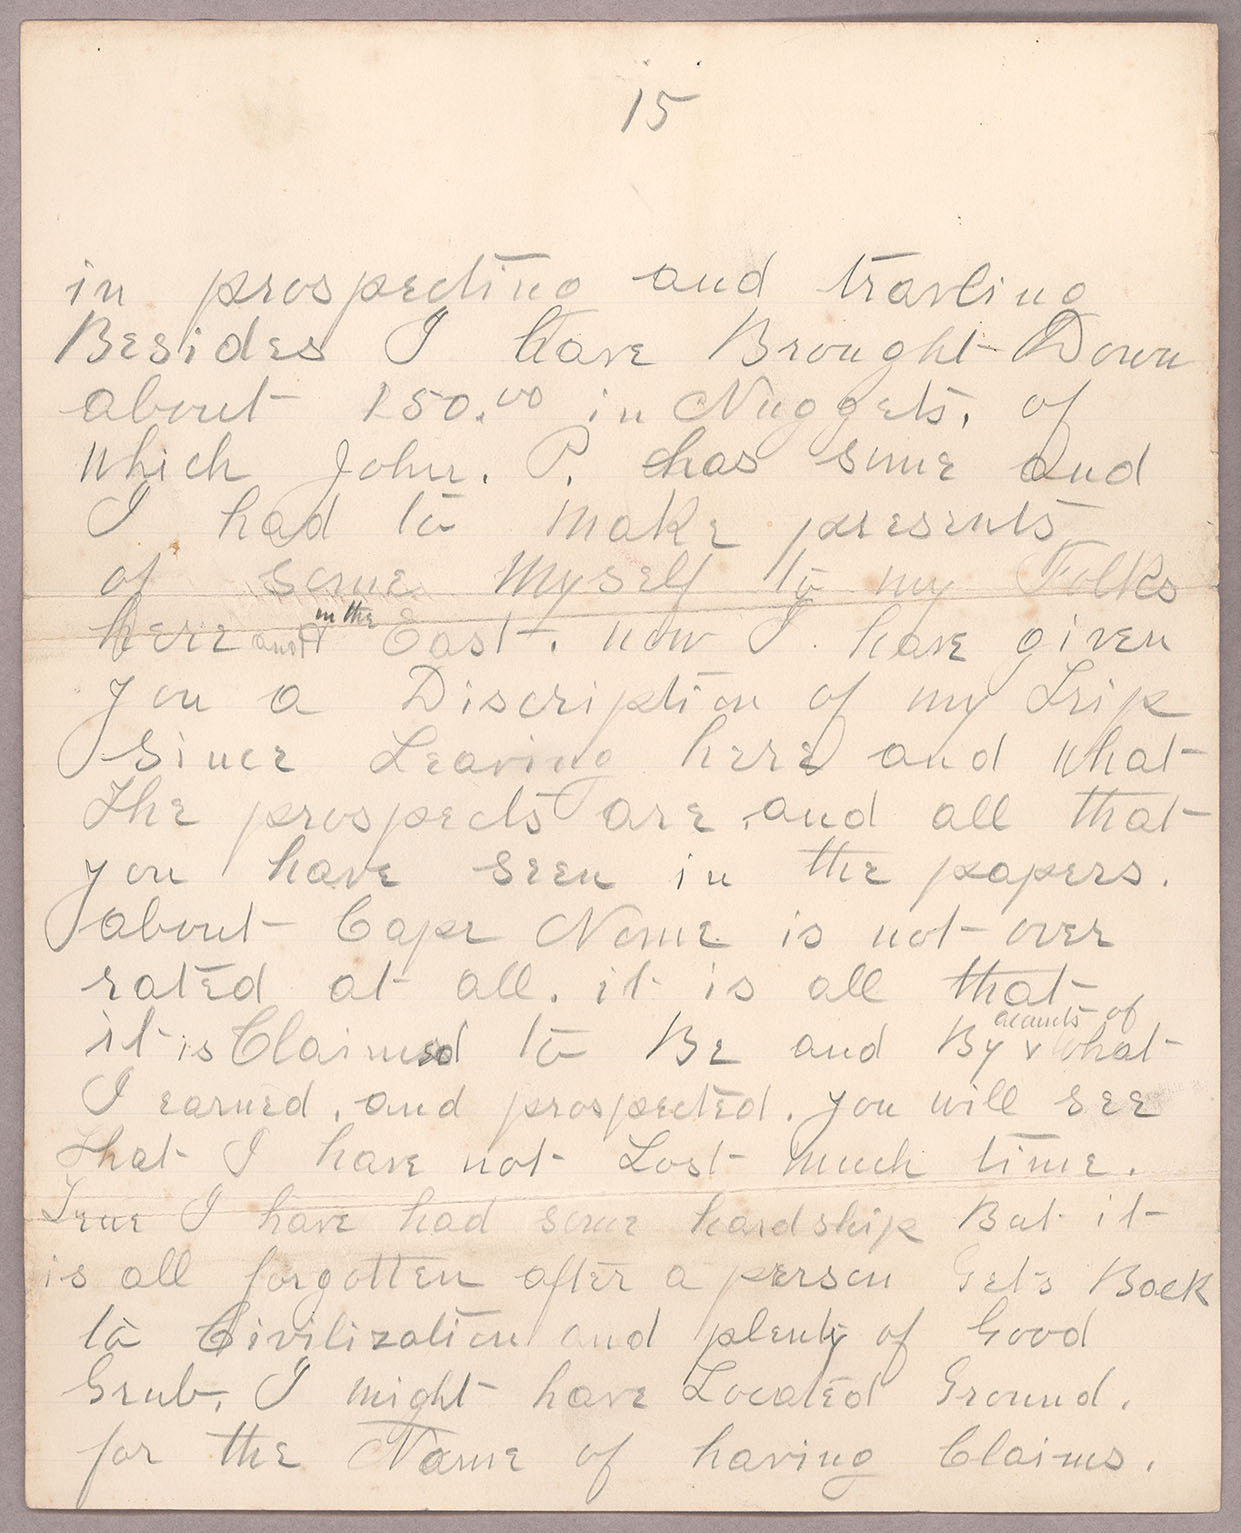 15
in prospecting and travling
Besides I have Brought Down
about 150.00 in Nuggets, of
which John. P. has some and
I had to make presents
of some Myself to my Folks
here and in the East. now I have given
you a Discription of my Trip
Since Leaving here and what
The prospects are, and all that
you have seen in the papers.
about Cape Nome is not over
rated at all. it is all that
it is Claimed to Be and By acounts of what
I earned, and prospected. you will see
that I have not Lost much time.
True I have had some hardship But it
is all forgotten after a person Gets Back
to Civilization and plenty of Good
Grub, I might have Located Ground.
for the Name of having Claims.